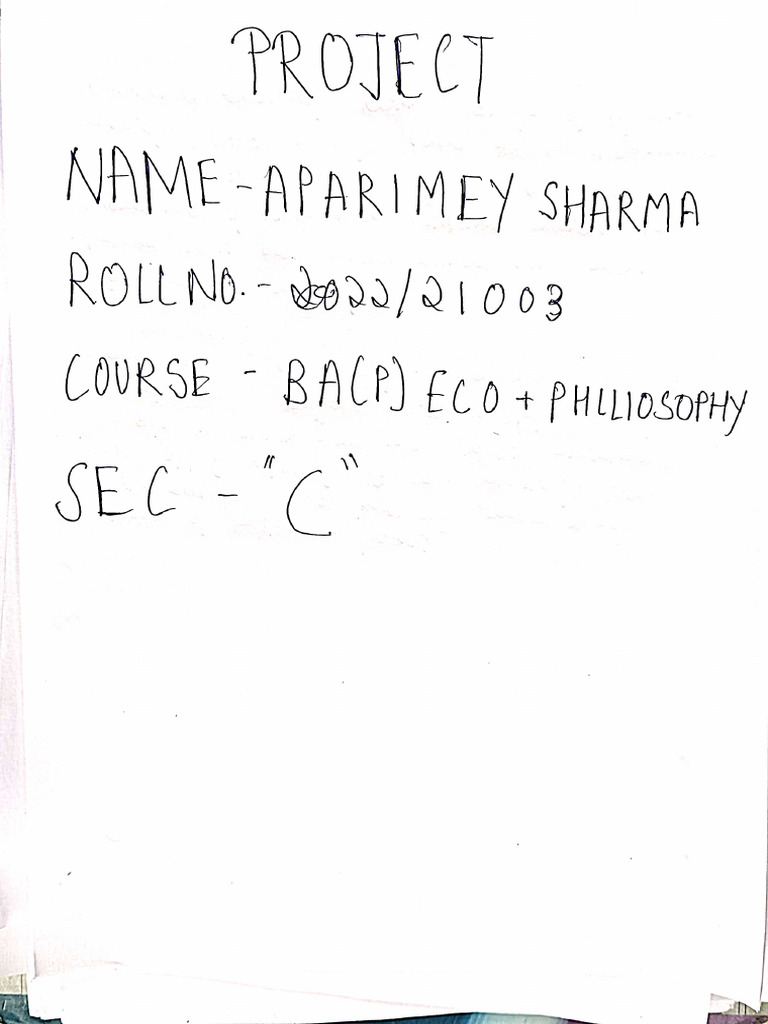 PROJECT
NAME - APARIMEY SHARMA
ROLL NO. - 2022/21003
COURSE - BA(P) ECO + PHILIOSOPHY
SEC - "C"